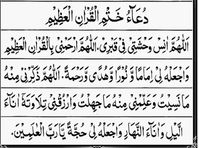 دُعَاءُ خَتْمِ الْقُرْاٰنِ الْعَظِيْمِ
اَللّٰهُمَّ اٰنِسْ وَحْشَتِيْ فِيْ قَبْرِيْ، اَللّٰهُمَّ ارْحَمْنِيْ بِالْقُرْاٰنِ الْعَظِيْمِ
وَاجْعَلْهُ لِيْ اِمَامًا وَّ نُوْرًا وَّهُدًى وَّرَحْمَةً، اَللّٰهُمَّ ذَكِّرْنِيْ مِنْهُ
مَا نَسِيْتُ وَعَلِّمْنِيْ مِنْهُ مَا جَهِلْتُ وَارْزُقْنِيْ تِلَاوَتَهٗ اٰنَاءَ
الَّيْلِ وَاٰنَاءَ النَّهَارِ وَاجْعَلْهُ لِيْ حُجَّةً يَّا رَبَّ الْعٰلَمِيْنَ.